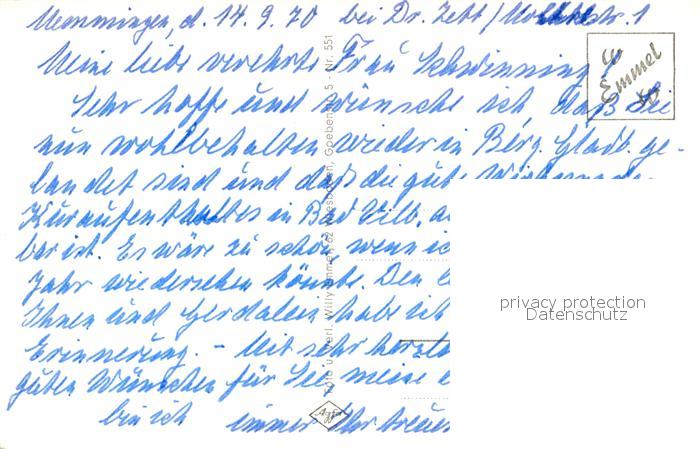 Memmingen, d. 14. 9. 70 bei Dr. Zett / Moltkestr. 1
Meine liebe verehrte Frau Schwinning!
Sehr hoffe und wünsche ich, daß Sie
nun wohlbehalten wieder in Berg. Gladb. ge-
landet sind und daß die gute
Kuraufenthaltes in Bad Vilb.
bar ist. Es wäre zu schön, wenn ic
Jahr wiedersehen könnte. Den
Ihnen und habe ich
Erinnerung. - Mit sehr herzl
guten Wünschen für Sie, meine
bin ich immer Ihr treues
Emmel
Foto u. Verl. Willy Emmel, 62 Wiesbaden, Goebenstr. 5 - Nr. 551
Agfa
privacy protection
Datenschutz